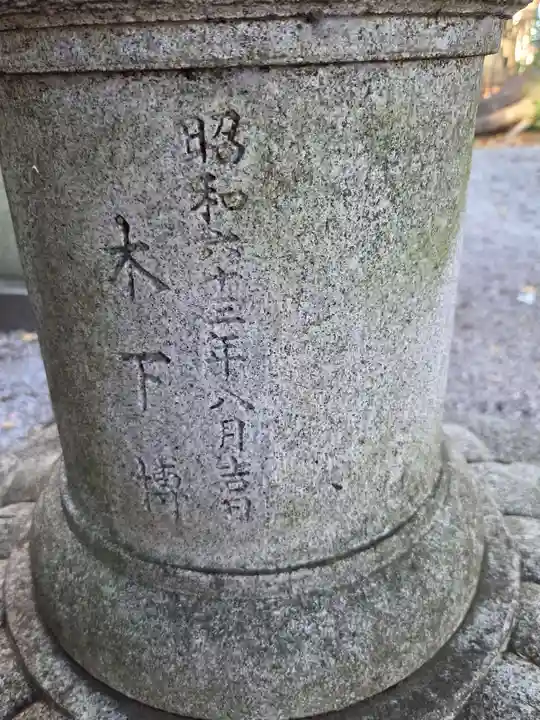 昭和六十三年八月吉日
木下博